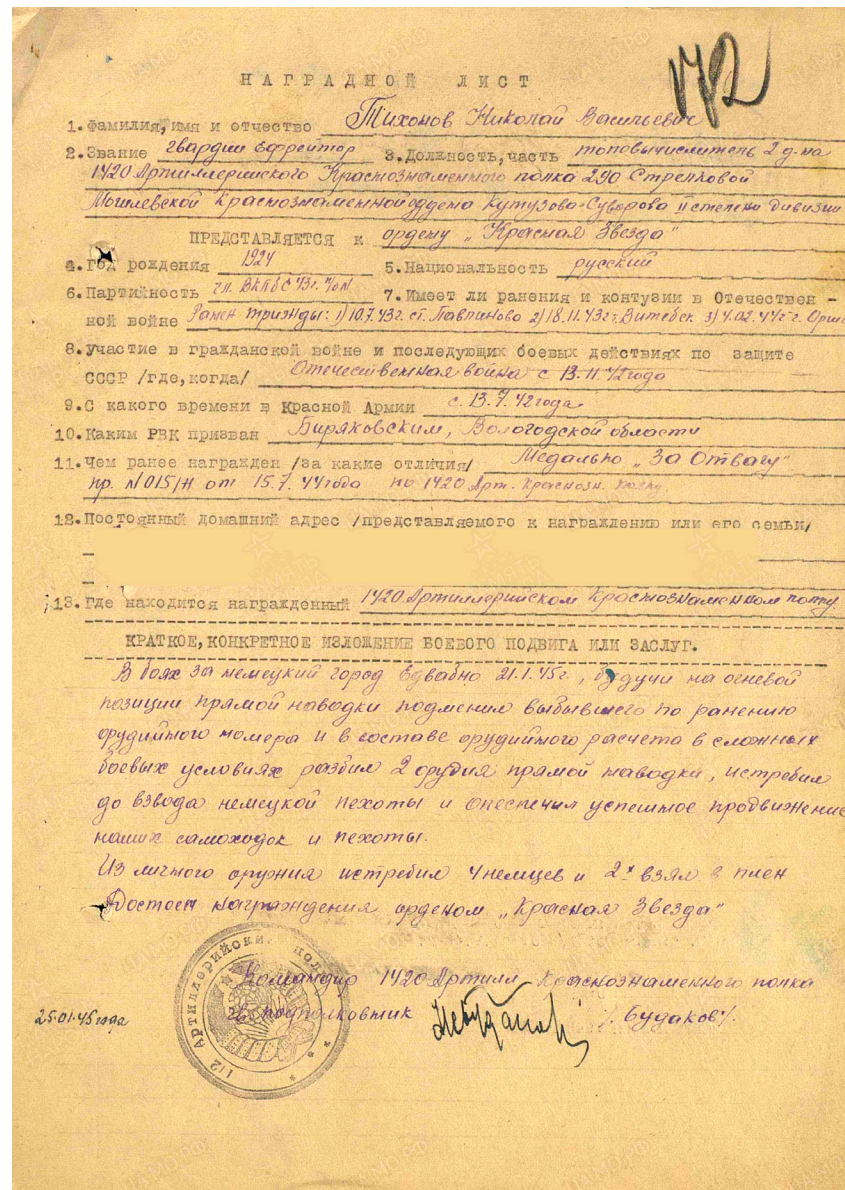 172
НАГРАДНОЙ ЛИСТ
1. Фамилия, имя и отчество Тихонов Николай Васильевич
2. Звание гвардии Ефрейтор 3. Должность, часть топовычислитель 2 д-на
1420 Артиллерийского Краснознаменного полка 290 Стрелковой
Могилевской Краснознаменной ордена Кутузова-Суворова II степени дивизии
ПРЕДСТАВЛЯЕТСЯ к ордену „Красная Звезда"
4. Год рождения 1924 5. Национальность русский
6. Партийность чл. ВКПб с 43г. 7. Имеет ли ранения и контузии в Отечествен -
ной войне Ранен трижды: 1) 10.7.43г. ст. Павлиново 2) 18.11.43г. г. Витебск 3) 4.02.44г. г. Орша
8. Участие в гражданской войне и последующих боевых действиях по защите
СССР /где, когда/ Отечественная война с 13.11.42 года
9. С какого времени в Красной Армии с 13.7.42 года
10. Каким РВК призван Биряковским, Вологодской области
11. Чем ранее награжден /за какие отличия/ Медалью „За Отвагу"
пр. №015/н от 15.7.44 года по 1420 Арт. Краснозн. полку.
12. Постоянный домашний адрес /представляемого к награждению или его семьи/
13. Где находится награжденный 1420 Артиллерийском Краснознаменном полку
КРАТКОЕ, КОНКРЕТНОЕ ИЗЛОЖЕНИЕ БОЕВОГО ПОДВИГА ИЛИ ЗАСЛУГ.
В боях за немецкий город Едвабно 21.1.45г., будучи на огневой
позиции прямой наводки подменил выбывшего по ранению
орудийного номера и в составе орудийного расчета в сложных
боевых условиях разбил 2 орудия прямой наводки, истребил
до взвода немецкой пехоты и опестечил успешное продвижение
наших самоходок и пехоты.
Из личного оружия истребил 4 немцев и 2х взял в плен
Достоен награждения орденом „Красная Звезда"
АРТИЛЛЕРИЙСКИЙ ПОЛК
Командир 1420 Артилл Краснознаменного полка
25.01.45 года гв. подполковник /Будаков/.